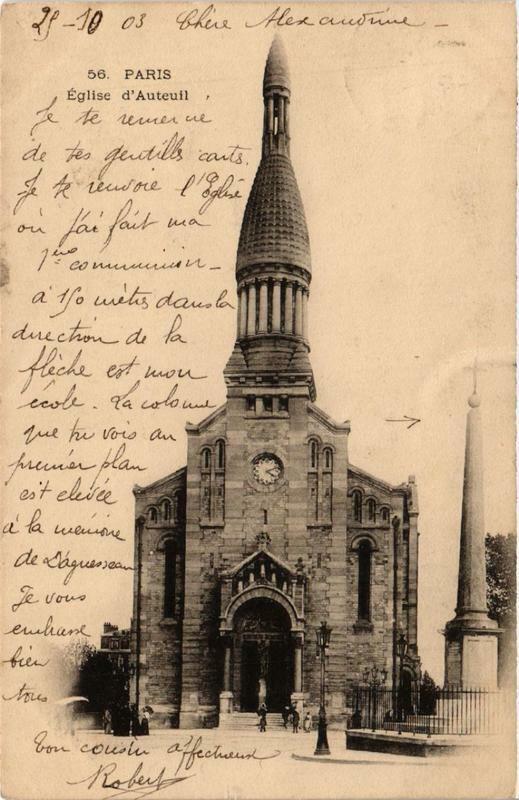 25-10 03 Chère Alexandrine -
56. PARIS
Église d'Auteuil
Je te remercie
de tes gentilles cartes.
Je te renvoie l'Église
où j'ai fait ma
1ère communion -
à 150 mètres dans la
direction de la
flèche est mon
école. La colonne
que tu vois au
premier plan
est elevée
à la mémoire
de Daguesseau
Je vous
embrasse
bien
tous
Ton cousin affectueux
Robert